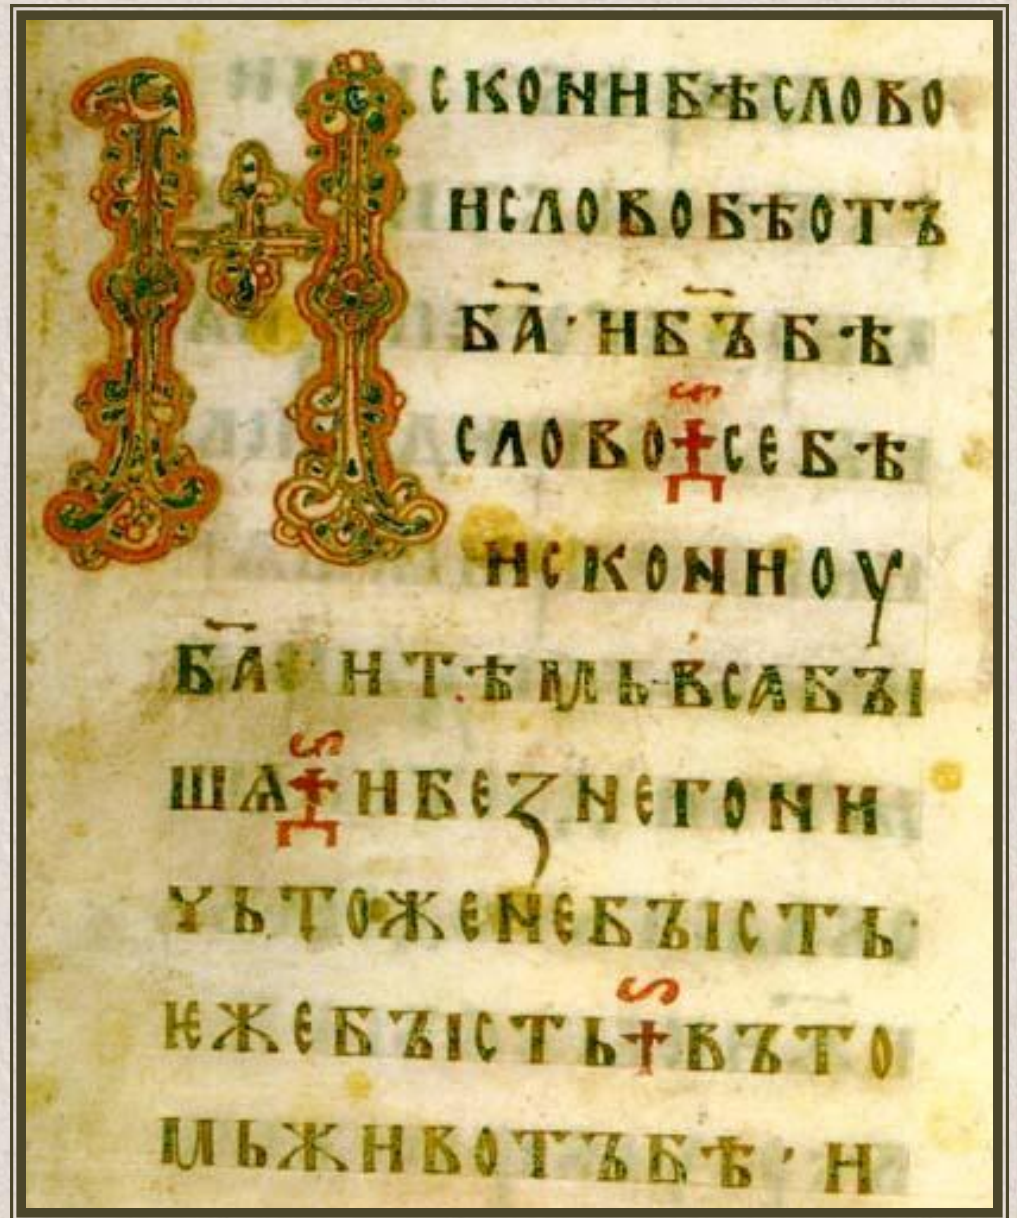 Исконибѣслово
исловобѣотъ
ба҃·ибъ҃бѣ
слово†себѣ
исконноу
ба҃·итѣмьвсабꙑ
шѧ†ибезнегони
чьтоженебꙑсть·
ѥжебꙑсть†въто
мьживотъбѣ·и